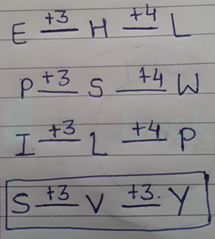 E +3 H +4 L
P +3 S +4 W
I +3 L +4 P
S +3 V +3. Y